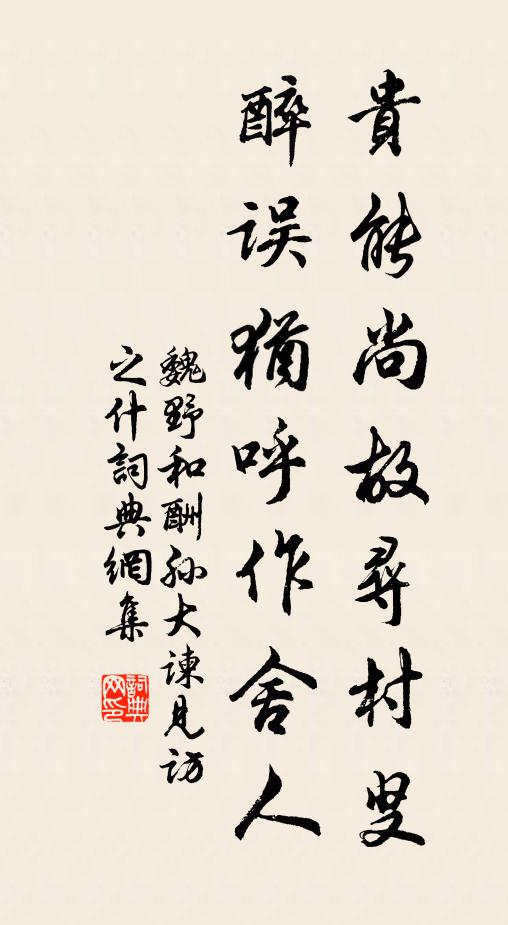 貴能尚故尋村叟
醉误猶呼作舍人
魏野和酬孙大谏見访
之什詞典網集
詞典
网印